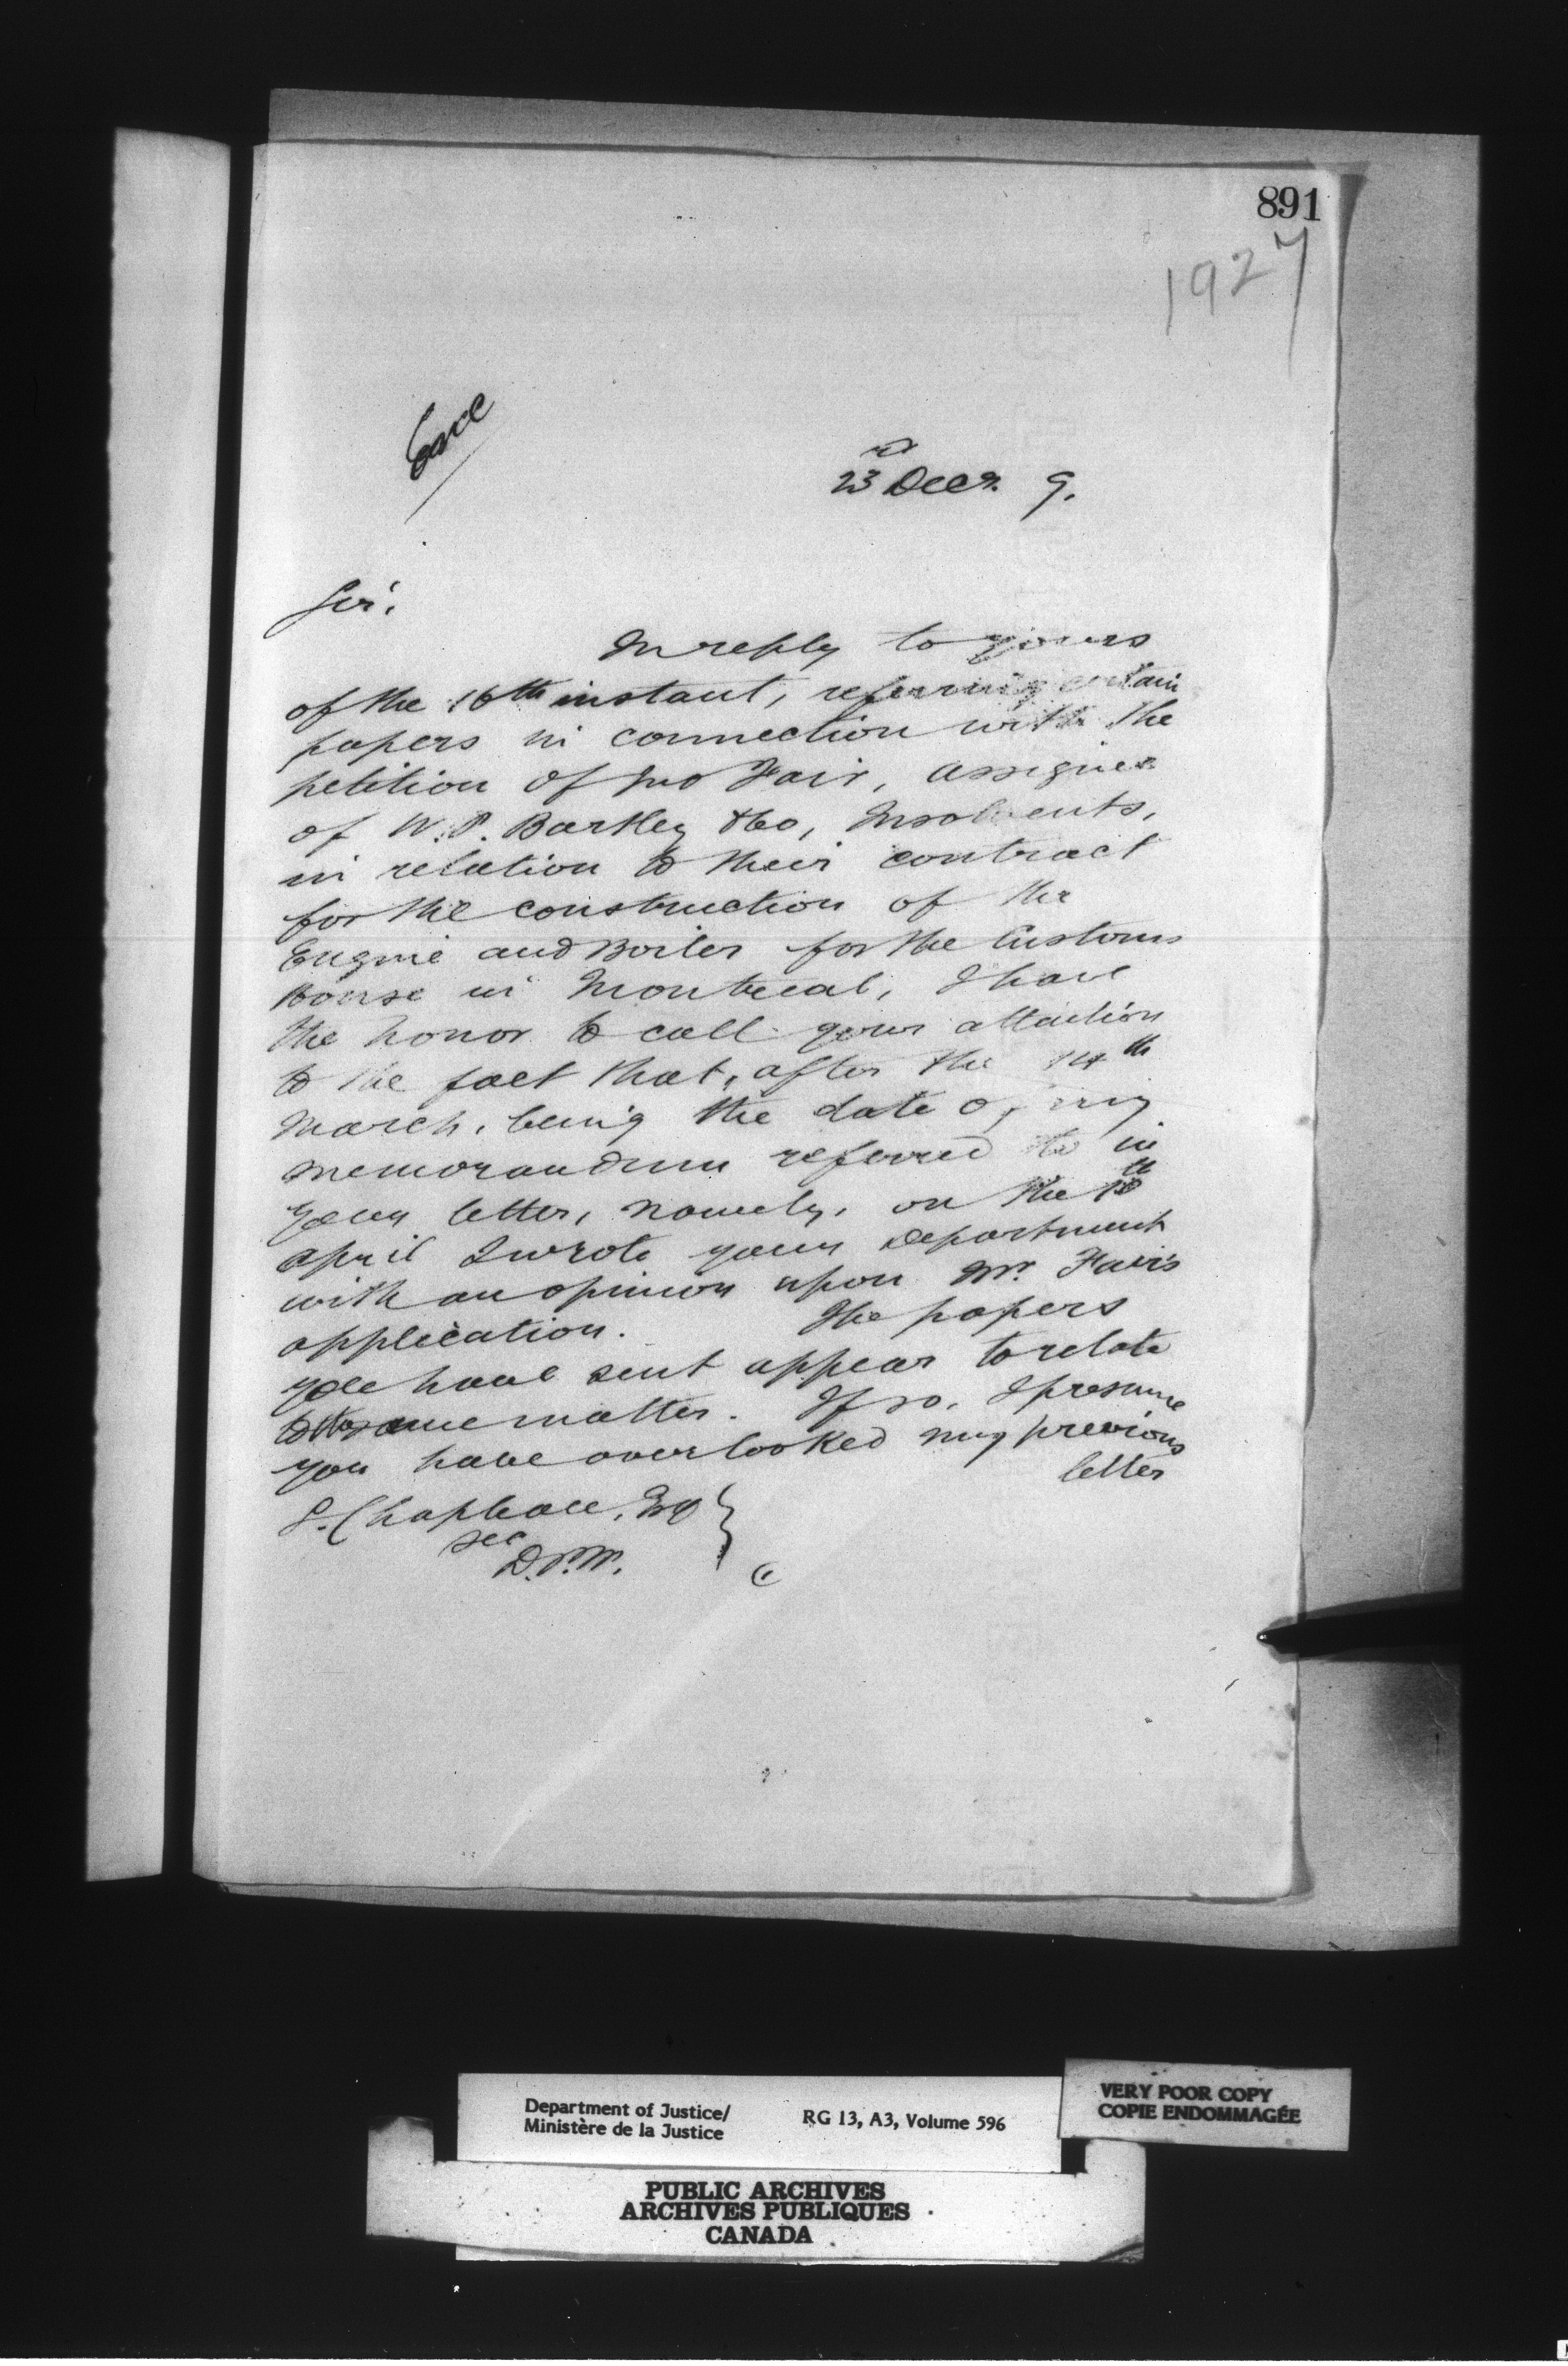 891
1927
23rd Decr. 9.
Sir,
In reply to yours
of the 16th instant, referring certain
papers in connection with the
petition of Jno Fair, assignee
of W. P. Bartley & Co, Insolvents,
in relation to their contract
for the construction of the
Engine and Boiler for the Customs
House in Montreal, I have
the honor to call your attention
to the fact that, after the 14th
March, being the date of my
memorandum referred to in
your letter, namely, on the
April I wrote your Department
with an opinion upon Mr. Fair's
application. The papers
you have sent appear to relate
to the same matter. If so, I presume
you have overlooked my previous
letter
S. Chapleau, Esq
Sec
D.P.W.
Department of Justice/
Ministère de la Justice
RG 13, A3, Volume 596
VERY POOR COPY
COPIE ENDOMMAGÉE
PUBLIC ARCHIVES
ARCHIVES PUBLIQUES
CANADA